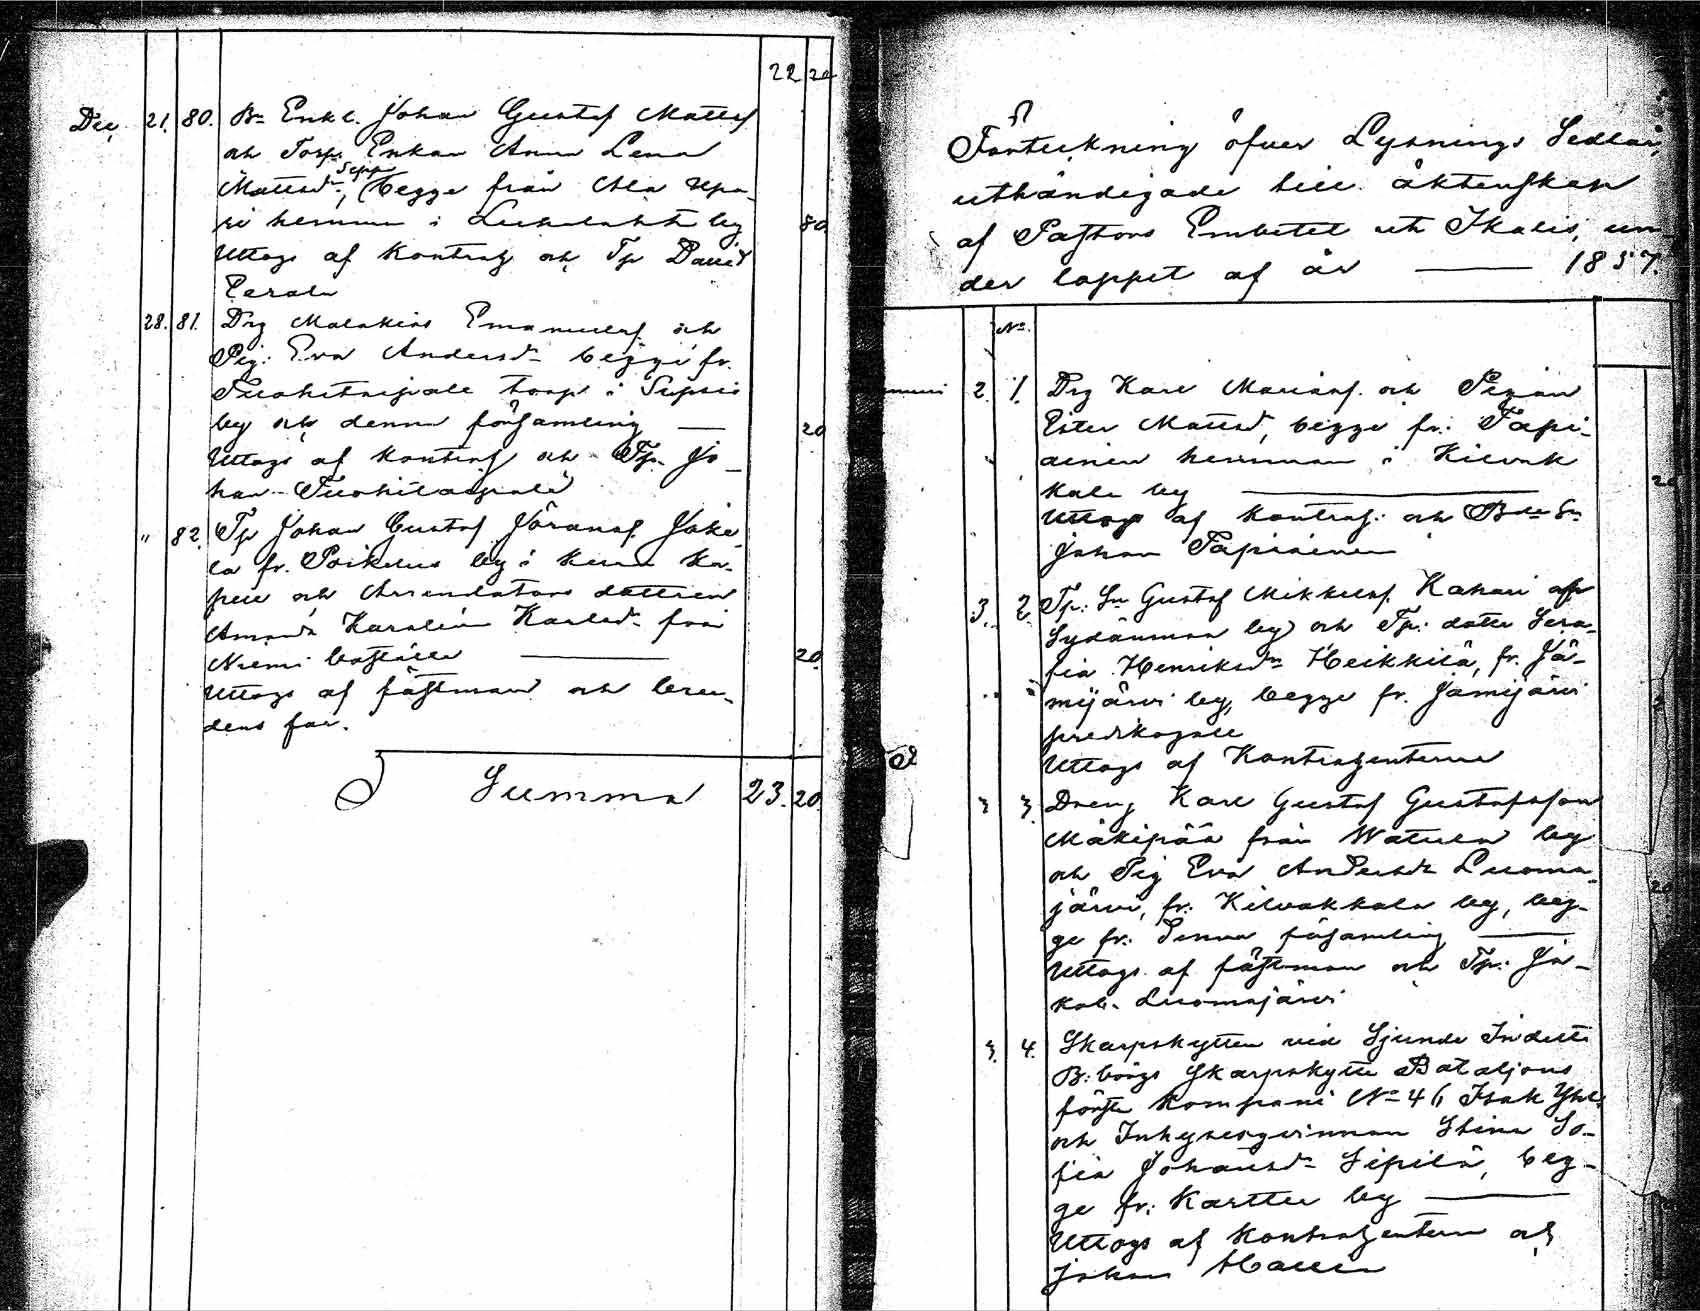 22 20
Dec. 21. 80. Bn Enkl. Johan Gustaf Mattsf
och Torp. Enkan Anna Lena
Mattsdr, Sepp begge från Ala Upa-
ri hemman i by 80
Uttogs af Kontrah och Tp David
Perala
28. 81. Drg Malakias Emanuelsf och
Pig: Eva Andersdr begge fr.
torp i Sipsiö
by och denna församling — 20
Uttogs af Kontrah och Tp. Jo-
han
" 82. Tp Johan Gustaf Göransf. Jake-
la fr. Poikelus by i
och Arrendators dottren
Amanda Karolina Karlsdr från
Niemi boställe — 20.
Uttogs af fästman och bru-
dens far.
Summa 23. 20.
Förteckning öfver Lysnings Sedlar,
uthändigade till äktenskap
af Pastors Embetet uti Ikalis, un-
der loppet af år — 1857.
No.
2. 1. Drg Karl Mariasf. och Pigan
Ester Mattsd, begge fr: Tapi-
ainen hemman i Kilvak
kala by — 20
Uttogs af Kontrah: och Bde Sn
Johan Tapiainen
3. 2. Tp: Sn Gustaf Mikkelsf. Kahari
Sydänmaa by och Tp: dotter Sera-
fia Henriksdr Heikkilä, fr. Jä-
mijärvi by, begge fr. Jämijärvi
predikogäll
Uttogs af Kontrahenterna
3 3. Dreng Karl Gustaf Gustafsson
Mäkipää från Watula by
och Pig Eva Andersdr Luoma-
järvi, fr: Kilvakkala by, beg- 20
ge fr: denna församling —
Uttogs af fästman och Tp: Ja-
kob. Luomajärvi
3. 4. Skarpskytten vid Sjunde Indelta
B:borgs Skarpskytte Bataljons
första Kompani No 46 Isak
och Inhysesqvinnan Stina So-
fia Johansdr Sipilä, beg-
ge fr: Karttu by —
Uttogs af Kontrahenterna och
Johan